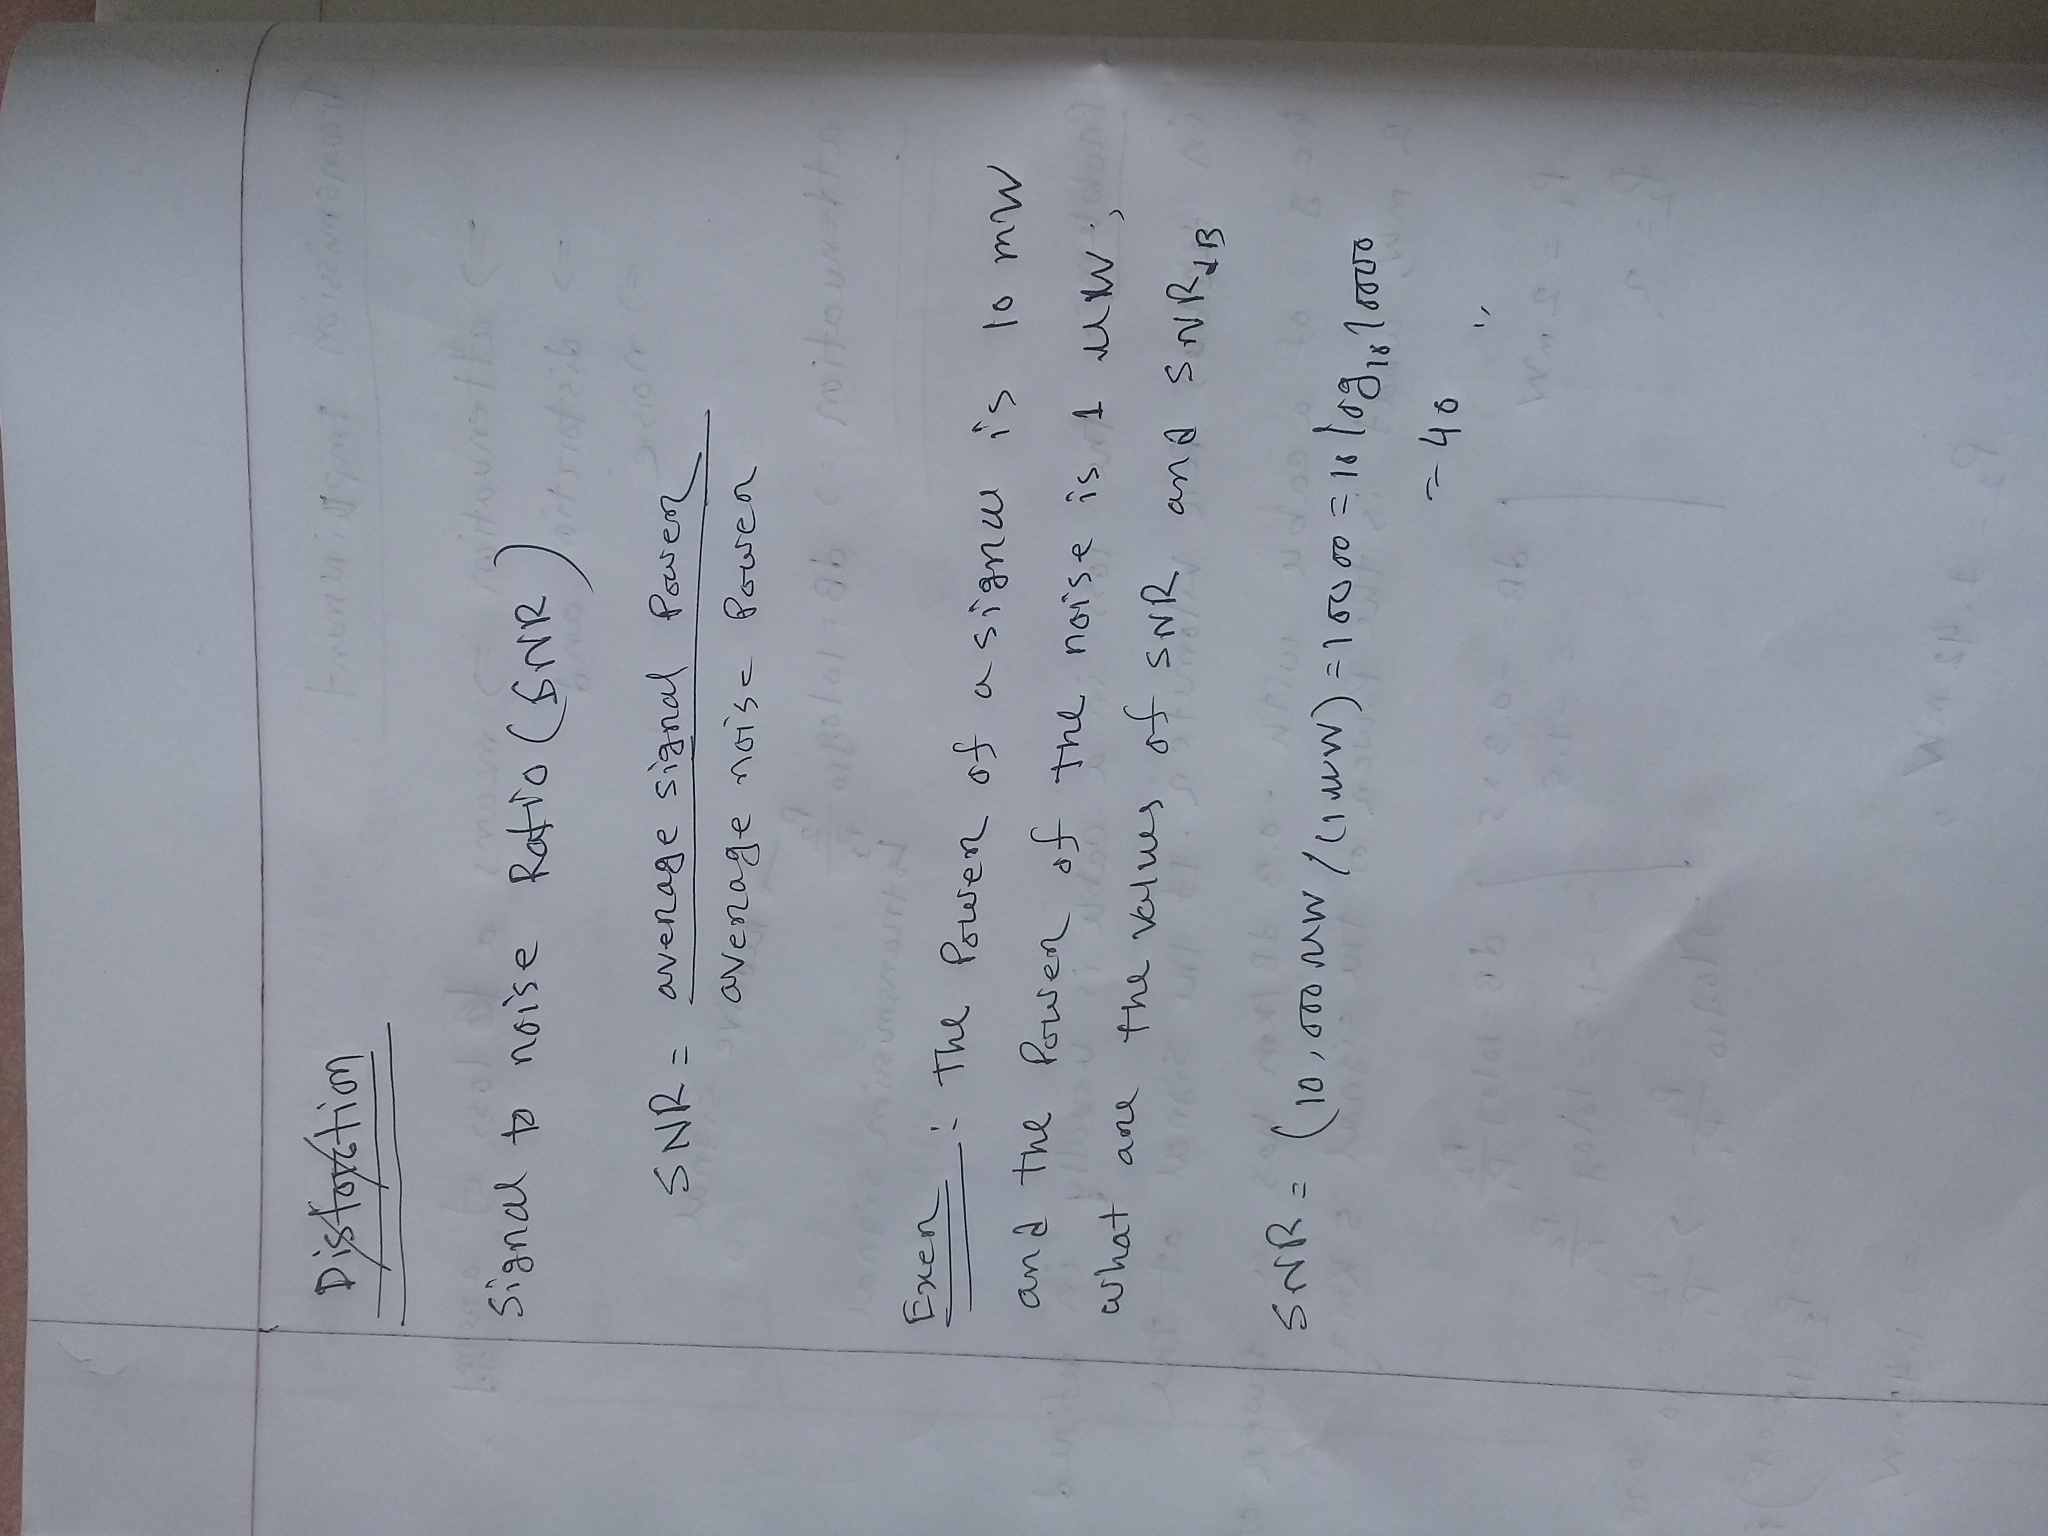 Distortion
Signal to noise Ratio (SNR)
SNR = average signal Power
average noise Power
Exer : The Power of a signal is 10 mW
and the Power of the noise is 1 μW;
what are the values of SNR and SNRdB
SNR = (10,000 μW / (1 μW) = 10000 = 10 log10 10000
= 40